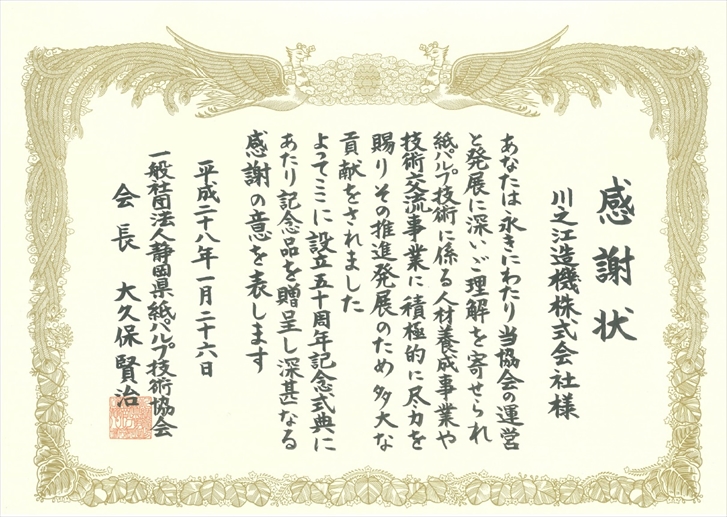 感謝状
川之江造機株式会社様
あなたは永きにわたり当協会の運営
と発展に深いご理解を寄せられ
紙パルプ技術に係る人材養成事業や
技術交流事業に積極的に尽力を
賜りその推進発展のため多大な
貢献をされました
よってここに設立五十周年記念式典に
あたり記念品を贈呈し深甚なる
感謝の意を表します
平成二十八年一月二十六日
一般社団法人静岡県紙パルプ技術協会
会長 大久保賢治